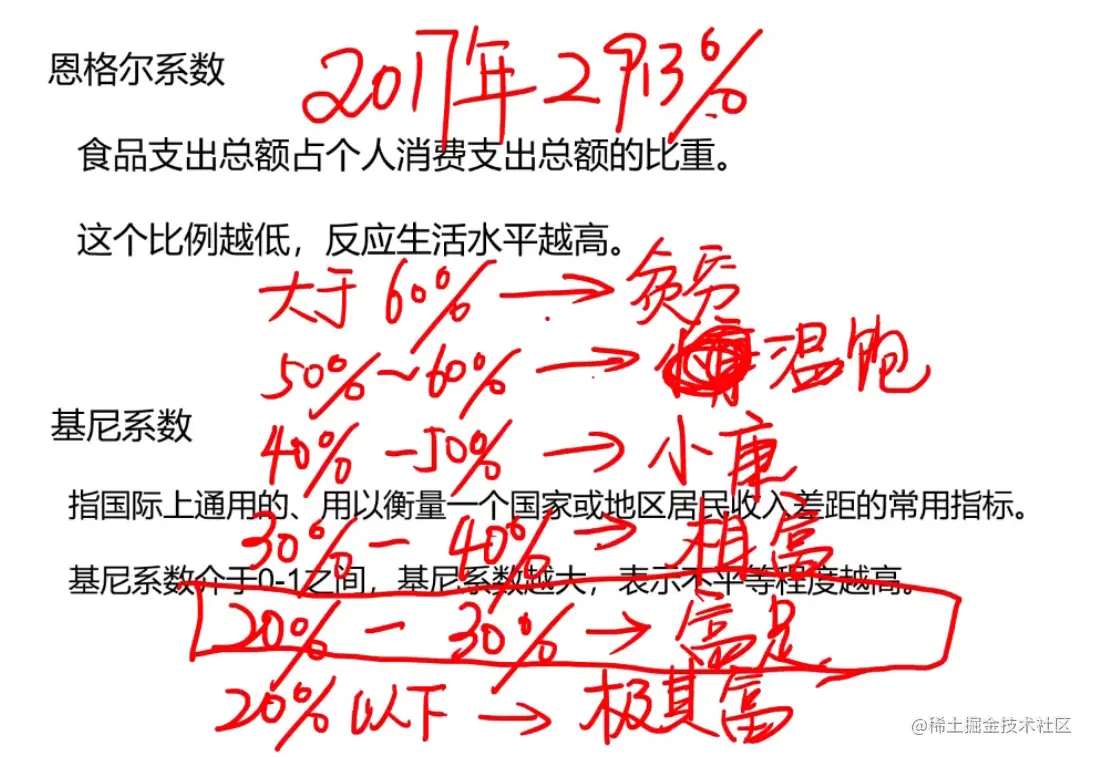 恩格尔系数
2017年 2913%
食品支出总额占个人消费支出总额的比重。
这个比例越低，反应生活水平越高。
大于 60% → 贫穷
50%~60% → 温饱
基尼系数
40% - 50% → 小康
指国际上通用的、用以衡量一个国家或地区居民收入差距的常用指标。
30% - 40% → 相富
基尼系数介于0-1之间，基尼系数越大，表示不平等程度越高。
20% - 30% → 富足
20% 以下 → 极其富
@稀土掘金技术社区